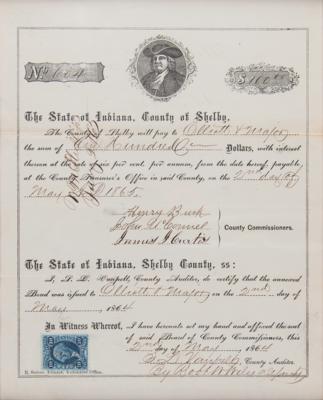 No 664
$100.00
The State of Indiana, County of Shelby.
The County of Shelby will pay to Elliott & Major
the sum of One Hundred Dollars, with interest
thereon at the rate of six per cent. per annum, from the date hereof, payable
at the County Treasurer's Office in said County, on the 2nd day of
May A D 1865.
Henry Buck
John
James
County Commissioners.
The State of Indiana, Shelby County, ss:
I, County Auditor, do certify the annexed
Bond was issued to Elliott & Major on the 2nd day of
May, 1864
In Witness Whereof, I have hereunto set my hand and official the seal
of said Board of County Commissioners, this
2nd day of May 1864
County Auditor
By